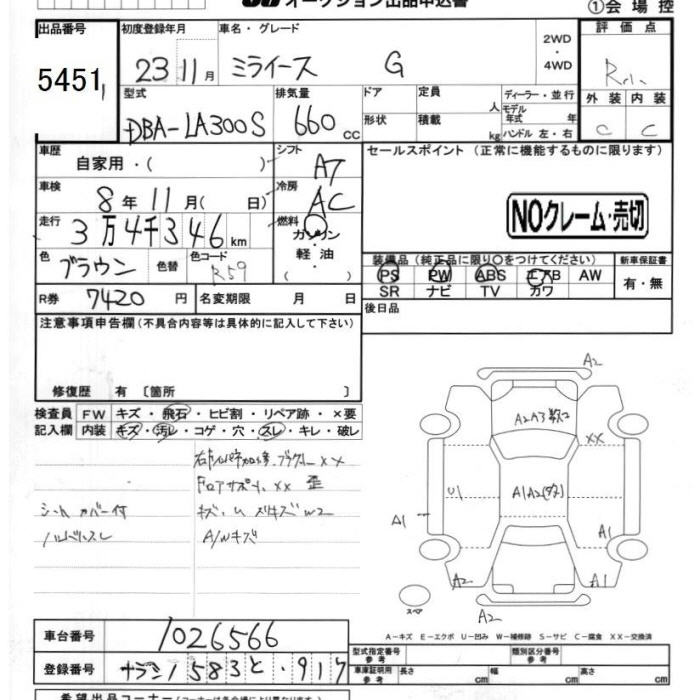 オークション出品申込書
①会場控
出品番号
5451
初度登録年月
23 11月
車名・グレード
ミライース G
2WD
・
4WD
評価点
R
外装 内装
C C
型式
DBA-LA300S
排気量
660 cc
ドア
定員
人
形状
積載
kg
ディーラー・並行
モデル
年式 年
ハンドル 左・右
車歴
自家用・( )
シフト
AT
車検
8年11月( 日)
冷房
AC
走行
3万4千346km
燃料
ガソリン
・
軽油
色
ブラウン
色替
色コード
R59
R券 7420円
名変期限 月 日
セールスポイント (正常に機能するものに限ります)
NOクレーム・売切
装備品 (純正品に限り〇をつけてください)
PS PW ABS エアB AW
SR ナビ TV カワ
新車保証書
有・無
後日品
注意事項申告欄(不具合内容等は具体的に記入して下さい)
修復歴 有〔箇所 〕
検査員 FW キズ・飛石・ヒビ割・リペア跡・×要
記入欄 内装 キズ・汚レ・コゲ・穴・スレ・キレ・破レ
シートカバー付
ハンドルスレ
XX 歪
A/Wキズ
A2
A2A3
XX
U1
A1A2
A1
A1
A2
A1
A2
スペア
A-キズ E-エクボ U-凹み W-補修跡 S-サビ C-腐食 XX-交換済
車台番号
1026566
登録番号
583 917
型式指定番号
参考
類別区分番号
参考
車庫証明用
参考
長さ cm
幅 cm
高さ cm
希望出品コーナー